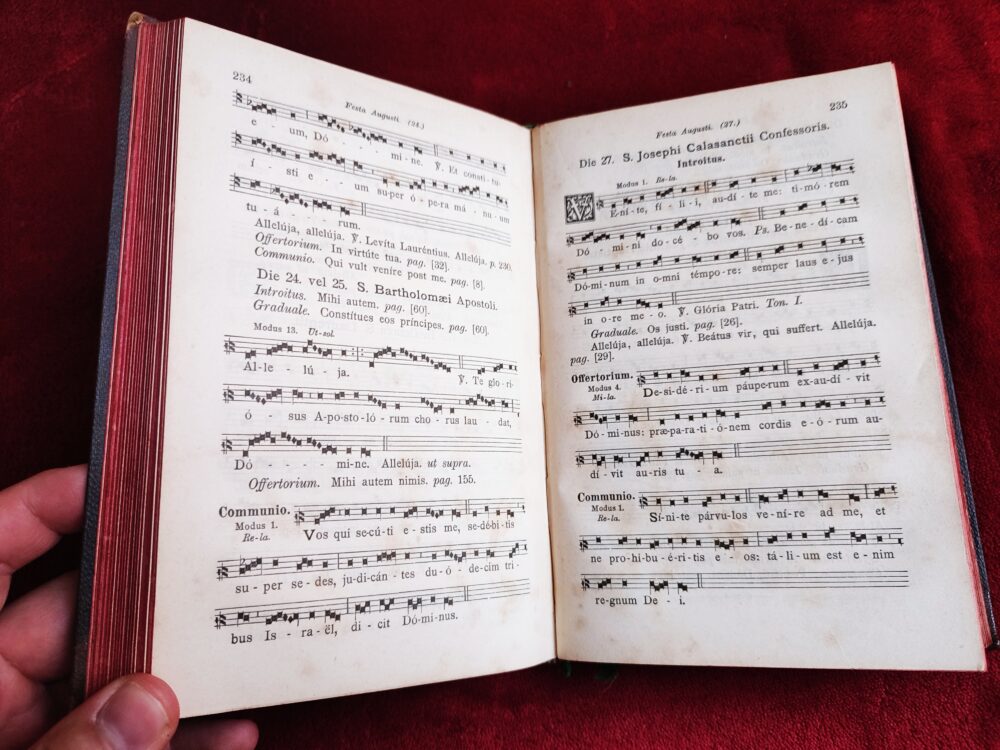 234
Festa Augusti. (24.)
e - um, Dó - - - - mi - ne. ℣. Et consti - tu -
í - sti e - - um su-per ó - pe-ra má - nu-um
tu - á - - rum.
Allelúja, allelúja. ℣. Levíta Lauréntius. Allelúja. p. 230.
Offertorium. In virtúte tua. pag. [32].
Communio. Qui vult veníre post me. pag. [8].
Die 24. vel 25. S. Bartholomæi Apostoli.
Introitus. Mihi autem. pag. [60].
Graduale. Constítues eos príncipes. pag. [60].
Modus 13. Ut-sol.
Al-le - lú - ja. ℣. Te glo-ri-
ó - sus A-po-sto-ló - rum cho - rus lau - dat,
Dó - - - - mi-ne. Allelúja. ut supra.
Offertorium. Mihi autem nimis. pag. 155.
Communio.
Modus 1.
Re-la.
Vos qui se-cú-ti e - stis me, se-dé-bi-tis
su - per se-des, ju-di-cán - tes du-ó - de-cim tri -
bus Is - ra-ël, di - cit Dó-mi-nus.
235
Festa Augusti. (27.)
Die 27. S. Josephi Calasanctii Confessoris.
Introitus.
Modus 1. Re-la.
VE-ní-te, fí - li - i, au-dí - te me: ti-mó-rem
Dó - mi-ni do-cé - bo vos. Ps. Be-ne-dí-cam
Dó-mi-num in o-mni témpo-re: semper laus e-jus
in o-re me-o. ℣. Glória Patri. Ton. I.
Graduale. Os justi. pag. [26].
Allelúja, allelúja. ℣. Beátus vir, qui suffert. Allelúja.
pag. [29].
Offertorium.
Modus 4.
Mi-la.
De-si-dé-ri-um páupe-rum ex-au-dí - vit
Dó-mi-nus: præ-pa-ra-ti-ó-nem cordis e-ó-rum au-
dí-vit au-ris tu - a.
Communio.
Modus 1.
Re-la.
Sí-ni-te párvu-los ve-ní-re ad me, et
ne pro-hi-bu-é-ri-tis e - os: tá-li-um est e-nim
re-gnum De - i.